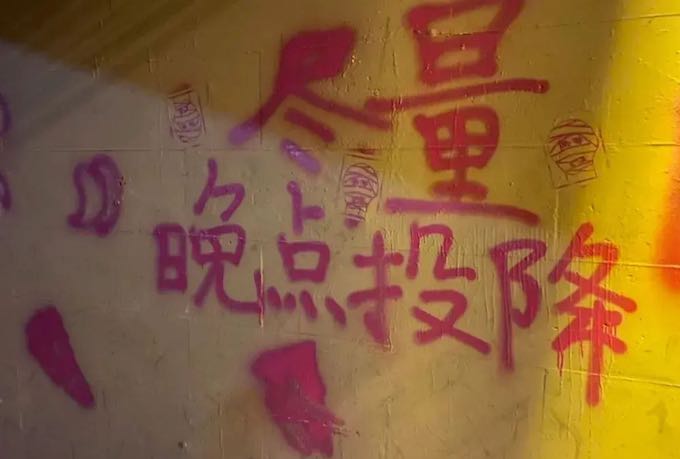 尽量
晚点投降